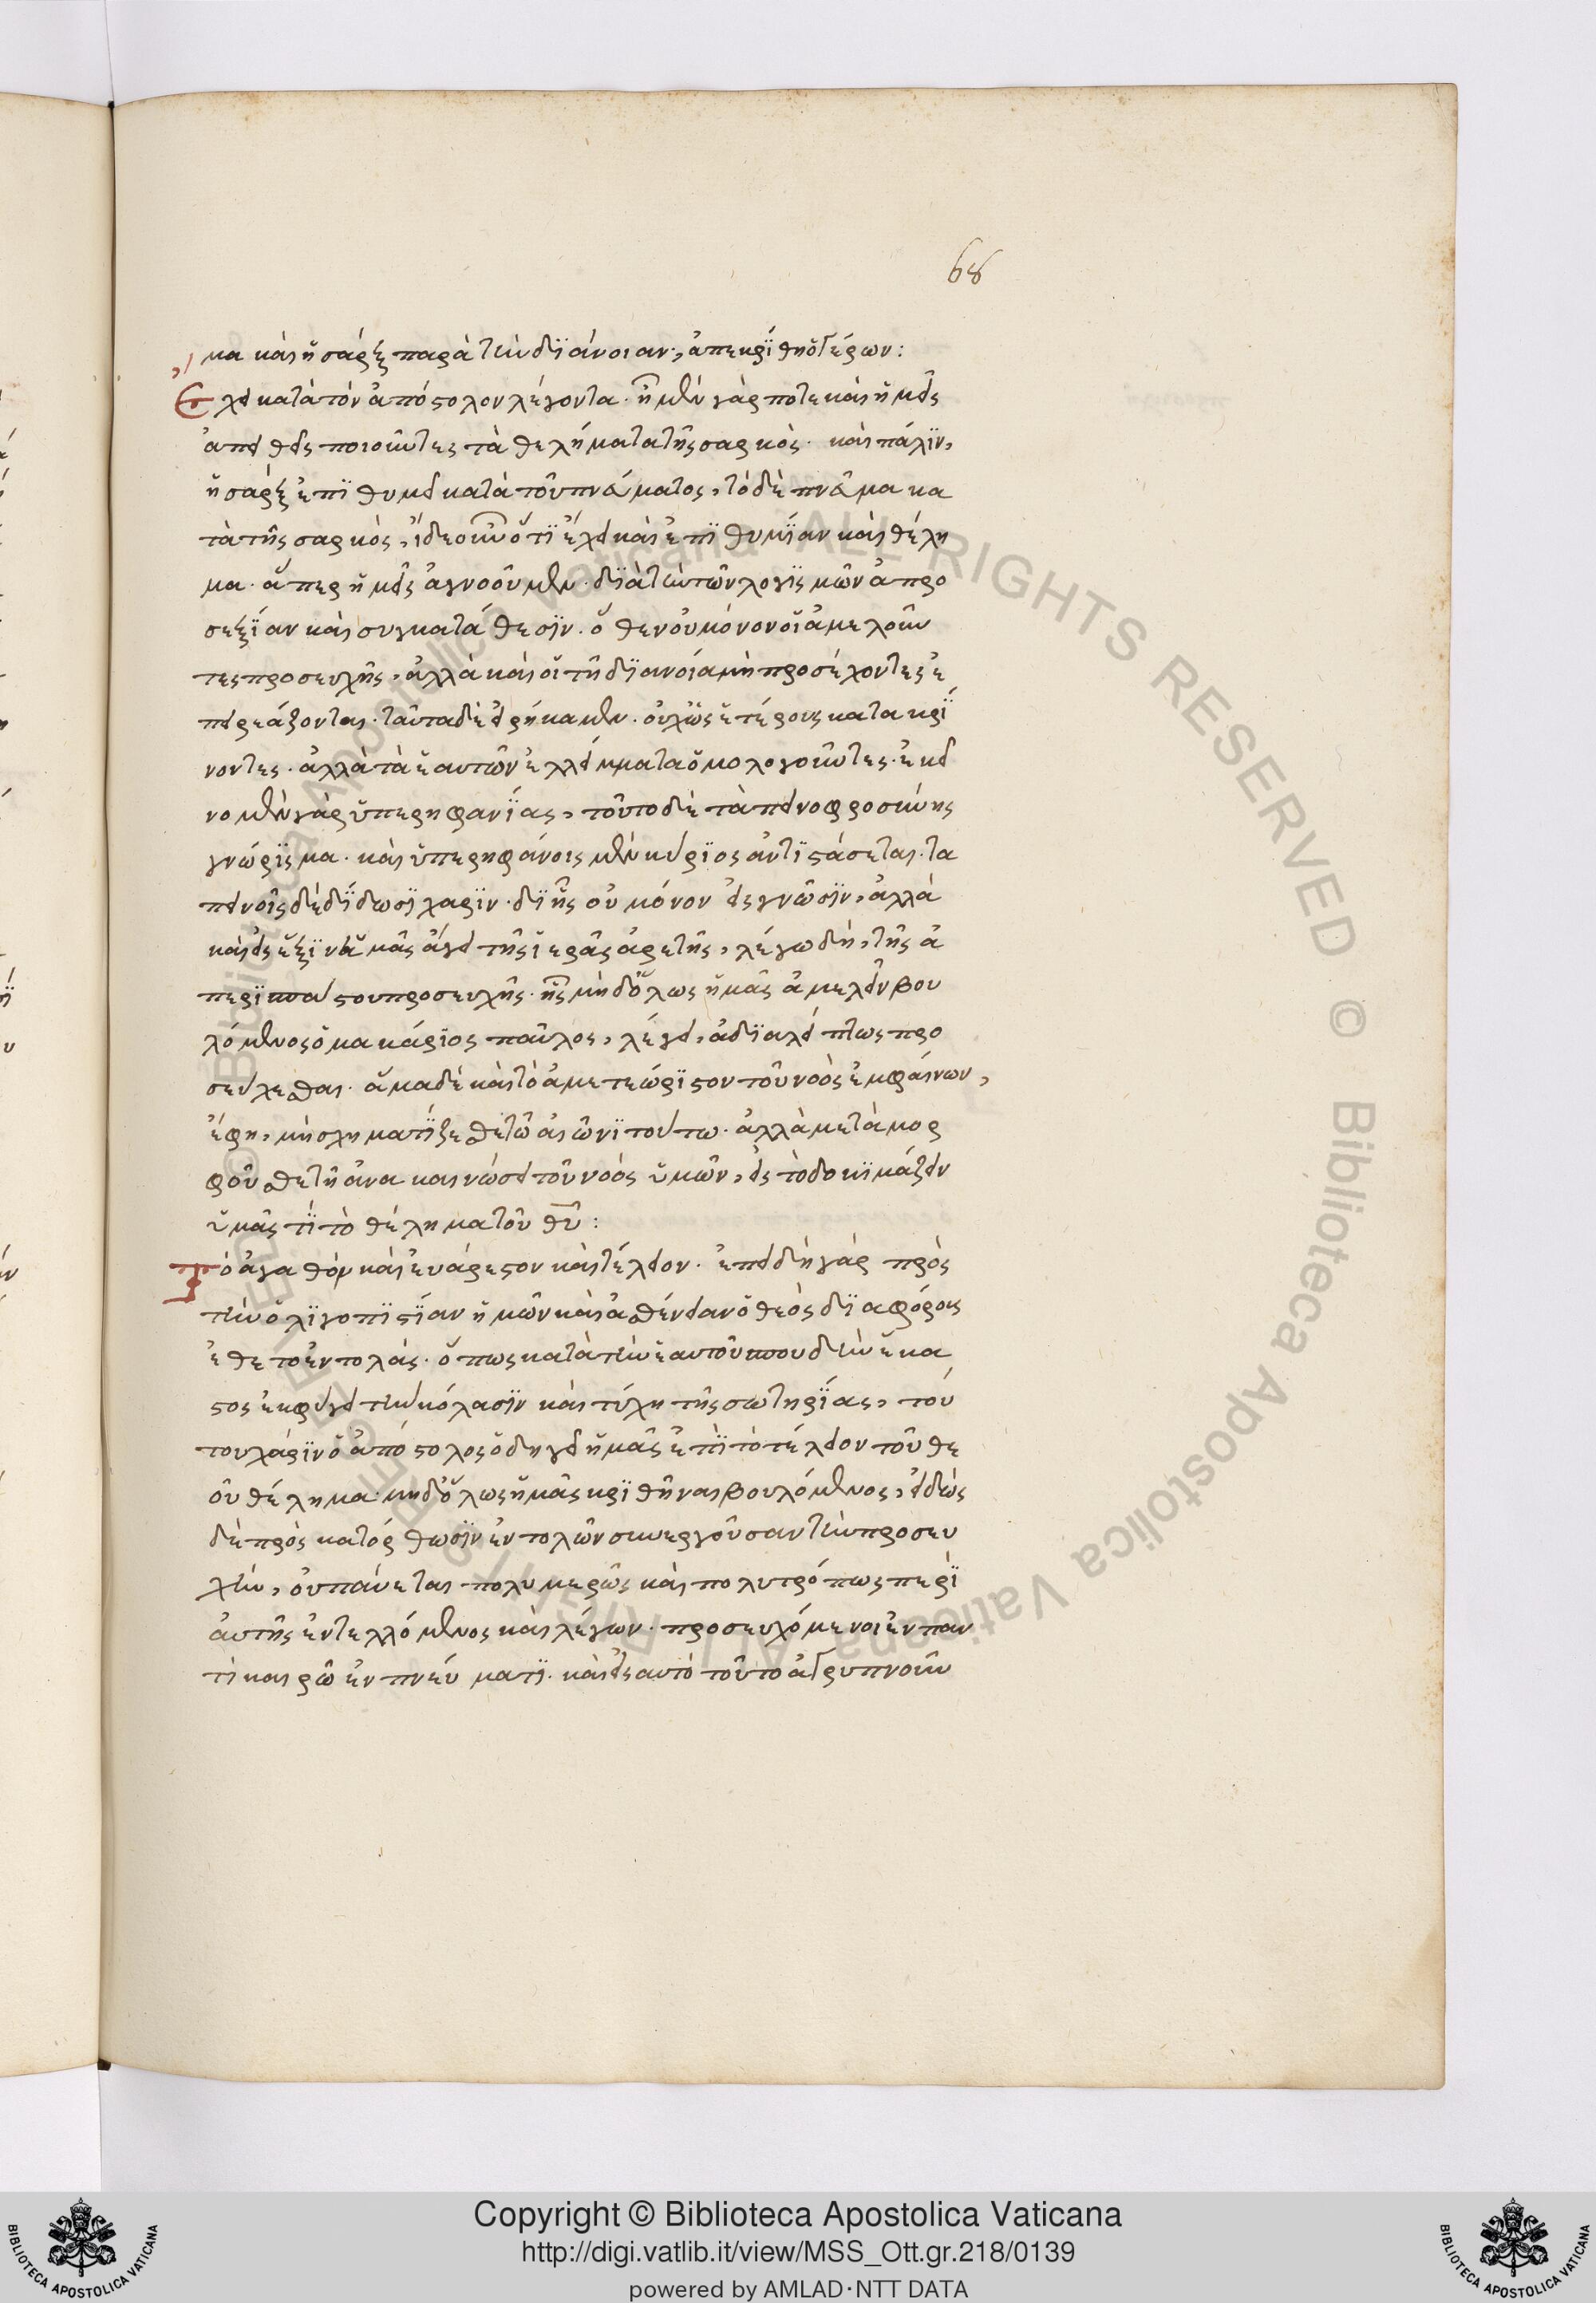 68
μα καὶ ἡ σάρξ παρὰ τὴν διάνοιαν, ἀπεκρίθη ὁ γέρων:
Ἔχει κατὰ τὸν ἀπόστολον λέγοντα. ἦμεν γάρ ποτε καὶ ἡμεῖς
ἀπειθεῖς ποιοῦντες τὰ θελήματα τῆς σαρκὸς. καὶ πάλιν,
ἡ σάρξ ἐπιθυμεῖ κατὰ τοῦ πνεύματος, τὸ δὲ πνεῦμα κα
τὰ τῆς σαρκὸς, ἴδε οὖν ὅτι ἔχει καὶ ἐπιθυμίαν καὶ θέλη
μα. ἅπερ ἡμεῖς ἀγνοοῦμεν. διὰ τὴν τῶν λογισμῶν ἀπρο
σεξίαν καὶ συγκατάθεσιν. ὅθεν οὐ μόνον οἱ ἀμελοῦν
τες προσευχῆς, ἀλλὰ καὶ οἱ τῇ διανοίᾳ μὴ προσέχοντες ἐ
πηρεάζονται. ταῦτα δὲ εἰρήκαμεν. οὐχ ὡς ἑτέρους κατακρί
νοντες. ἀλλὰ τὰ ἑαυτῶν ἐλλείμματα ὁμολογοῦντες. ἐκεῖ
νο μὲν γὰρ ὑπερηφανίας, τοῦτο δὲ ταπεινοφροσύνης
γνώρισμα. καὶ ὑπερηφάνοις μὲν κύριος ἀντιτάσσεται. τα
πεινοῖς δὲ δίδωσι χάριν. δι ἧς οὐ μόνον εἰς γνῶσιν, ἀλλὰ
καὶ εἰς ἕξιν ἡμᾶς ἄγει τῆς ἱερᾶς ἀρετῆς, λέγω δὴ, τῆς ἀ
περισπάστου προσευχῆς. ἧς μηδ ὅλως ἡμᾶς ἀμελεῖν βου
λόμενος ὁ μακάριος παῦλος, λέγει, ἀδιαλείπτως προ
σεύχεσθαι. ἅμα δὲ καὶ τὸ ἀμετεώριστον τοῦ νοὸς ἐμφαίνων,
ἔφη, μὴ σχηματίζεσθε τῷ αἰῶνι τούτω. ἀλλὰ μεταμορ
φοῦσθε τῇ ἀνακαινώσει τοῦ νοός ὑμῶν, εἰς τὸ δοκιμάζειν
ὑμᾶς τί τὸ θέλημα τοῦ θῦ:
Τὸ ἀγαθόν καὶ εὐάρεστον καὶ τέλειον. ἐπειδὴ γὰρ πρὸς
τὴν ὀλιγοπιστίαν ἡμῶν καὶ ἀσθένειαν ὁ θεὸς διαφόρους
ἔθετο ἐντολάς. ὅπως κατὰ τὴν ἑαυτοῦ σπουδὴν ἕκα
στος ἐκφύγει τὴν κόλασιν καὶ τύχῃ τῆς σωτηρίας, τού
του χάριν ὁ ἀπόστολος ὁδηγεῖ ἡμᾶς ἐπὶ τὸ τέλειον τοῦ θε
οῦ θέλημα. μηδ ὅλως ἡμᾶς κριθῆναι βουλόμενος, εἰδὼς
δὲ πρὸς κατόρθωσιν ἐντολῶν συνεργοῦσαν τὴν προσευ
χὴν, οὐ παύεται πολυμερῶς καὶ πολυτρόπως περὶ
αὐτῆς ἐντελλόμενος καὶ λέγων. προσευχόμενοι ἐν παν
τὶ καιρῷ ἐν πνεύματι. καὶ εἰς αυτὸ τοῦτο ἀγρυπνοῦν
Copyright © Biblioteca Apostolica Vaticana
http://digi.vatlib.it/view/MSS_Ott.gr.218/0139
powered by AMLAD·NTT DATA